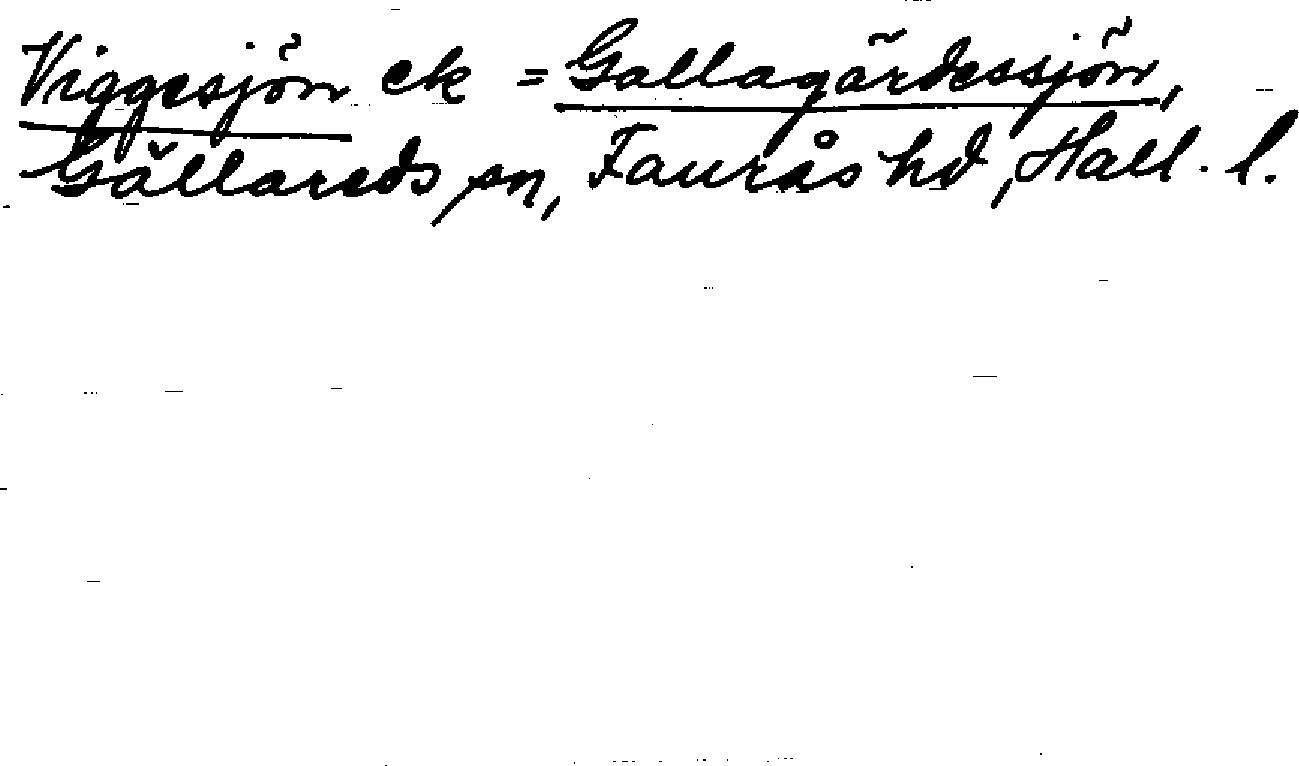 Viggesjön ek = Gallagärdessjön,
Gällareds sn, Faurås hd, Hall. l.